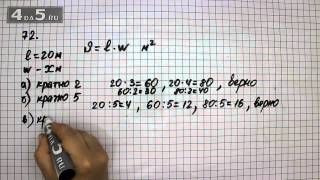 4da5.ru
72.
l = 20м S = l · w м²
w - xм
а) кратно 2 20·3=60, 20·4=80, верно
60:2=30 80:2=40
б) кратно 5 20:5=4, 60:5=12, 80:5=16, верно
в) кр
4DA5.RU